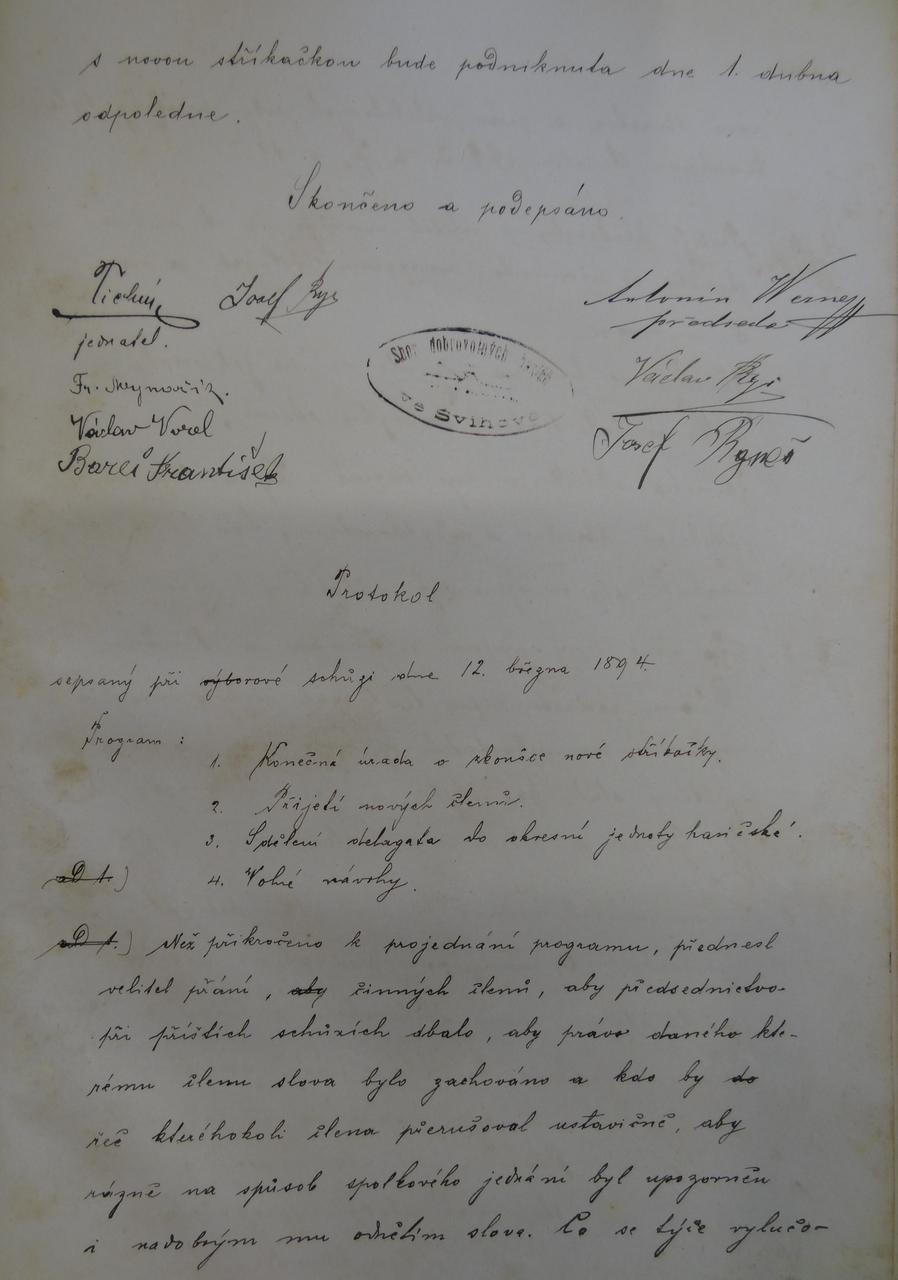 s novou stříkačkou bude podniknuta dne 1. dubna
odpoledne.
Skončeno a podepsáno.
Tichý Josef
jednatel.
Antonín Werner
předseda
Fr.
Václav Vorel
Bareš František
Sbor dobrovolných hasičů
ve Svihově
Václav
Josef Rygneš
Protokol
sepsaný při výborové schůzi dne 12. března 1894.
Program :
1. Konečná úrada o zkoušce nové stříkačky.
2. Přijetí nových členů.
3. Sdělení delagata do okresní jednoty hasičské.
aD 1.) 4. Volné návrhy.
aD 1.) Než přikročeno k projednání programu, přednesl
velitel přání, aby činných členů, aby předsednictvo
při příštích schůzích dbalo, aby právo daného kte-
rému členu slova bylo zachováno a kdo by do
řeč kteréhokoli člena přerušoval ustavičně, aby
rázně na spůsob spolkového jednání byl upozorněn
i nadobným mu odnětím slova. Co se týče vylučo-